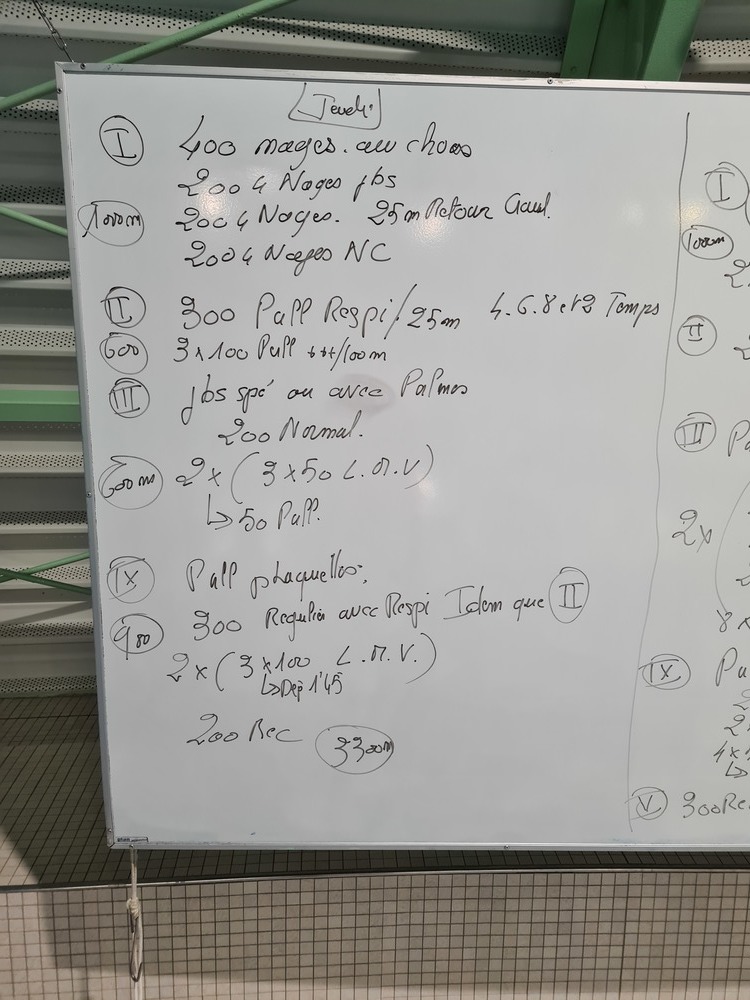 Jeudi.
I 400 nages. au choix
200 4 Nages jbs
1000m 200 4 Nages. 25m Retour Crawl.
200 4 Nages NC
II 300 Pull Respi/25m 4.6.8 et 2 Temps
600 3x100 Pull +++/100m
III jbs spé ou avec Palmes
200 Normal.
600m 2x (3x50 L.M.V)
↳ 50 Pull.
IX Pull plaquettes,
900 300 Regulier avec Respi Idem que II
2x (3x100 L.M.V.)
↳ Dep 1'45
200 Rec 3300m
I
1000m
2
II
III Pa
2x
8x
IX Pu
2
2x
4x
↳
V 300 Re